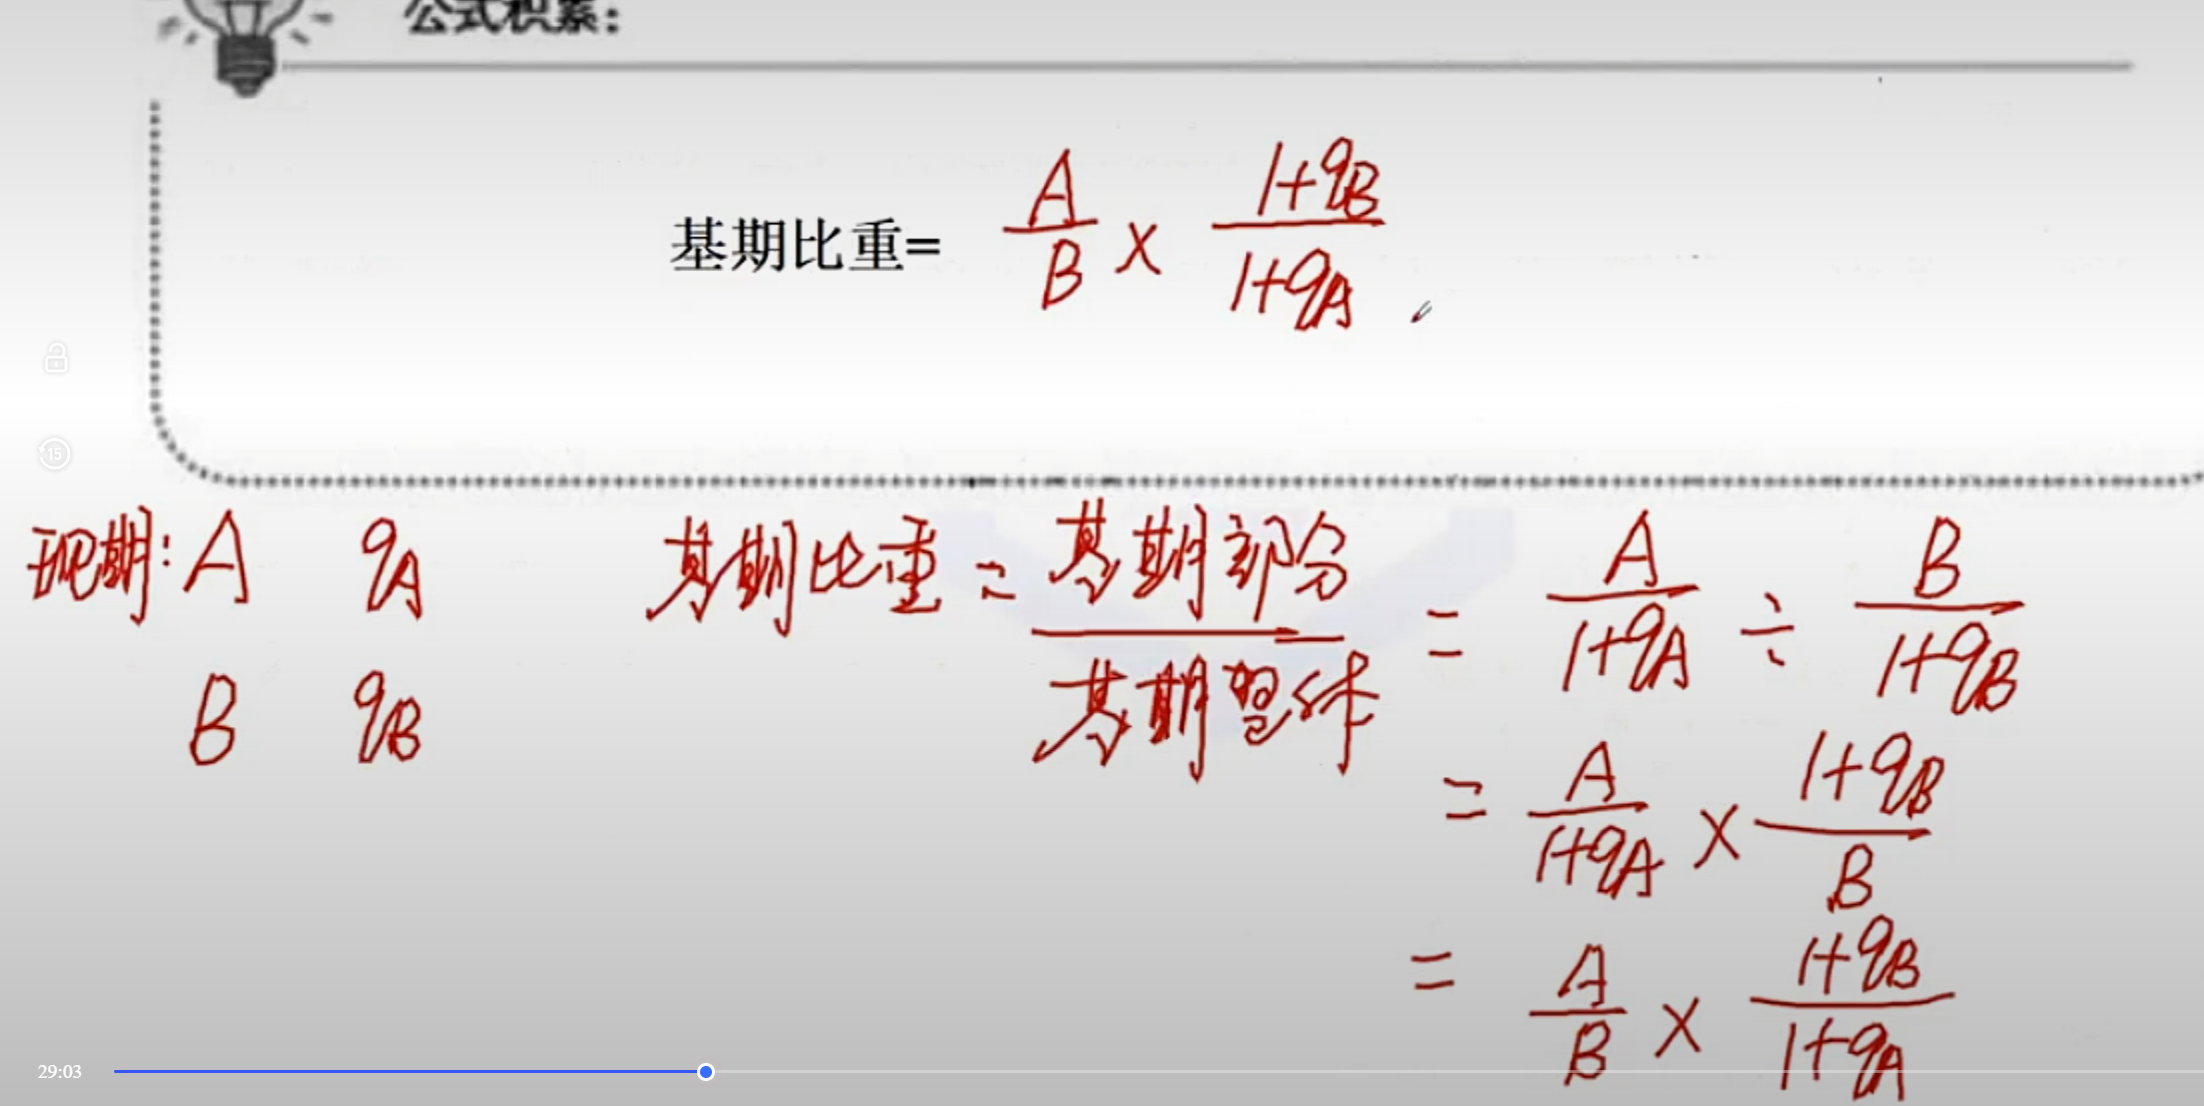 公式积累：
基期比重= A/B × (1+qB)/(1+qA)
15
现期: A qA 基期比重 = 基期部分/基期整体 = A/(1+qA) ÷ B/(1+qB)
B qB
= A/(1+qA) × (1+qB)/B
= A/B × (1+qB)/(1+qA)
29:03